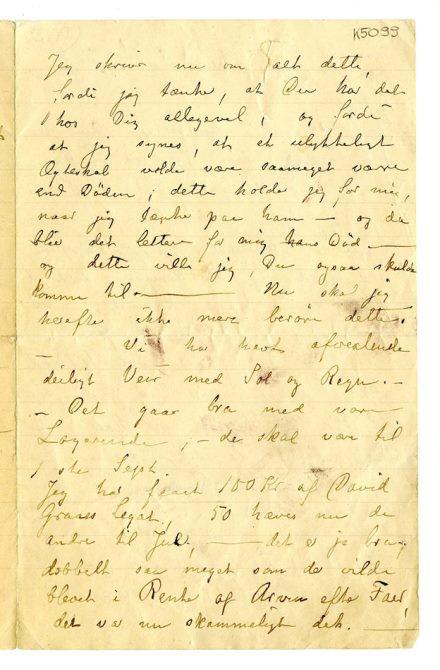 K5099
Jeg skriver nu om alt dette,
fordi jeg tænker, at Du har det
hos Dig allegevel, og fordi
at jeg synes, at et ulykkeligt
Ægteskab vilde være saameget værre
end Døden; dette holder jeg for mig,
naar jeg tænker paa ham — og da
blev det lettere for mig hans Død —
og dette vilde jeg, Du ogsaa skulde
komme til. — Nu skal jeg
herefter ikke mere berøre dette.
— Vi har havt afvexlende
deiligt Veir med Sol og Regn. —
— Det gaar bra med vore
Logerende, — de skal være til
1ste Sept.
Jeg har faaet 100 Kr af David
Graaes Legat, 50 hæves nu de
andre til Jul, — det er jo bra,
dobbelt saa meget som de vilde
blevet i Rente af Arven efter Faer,
det var nu skammeligt det. —